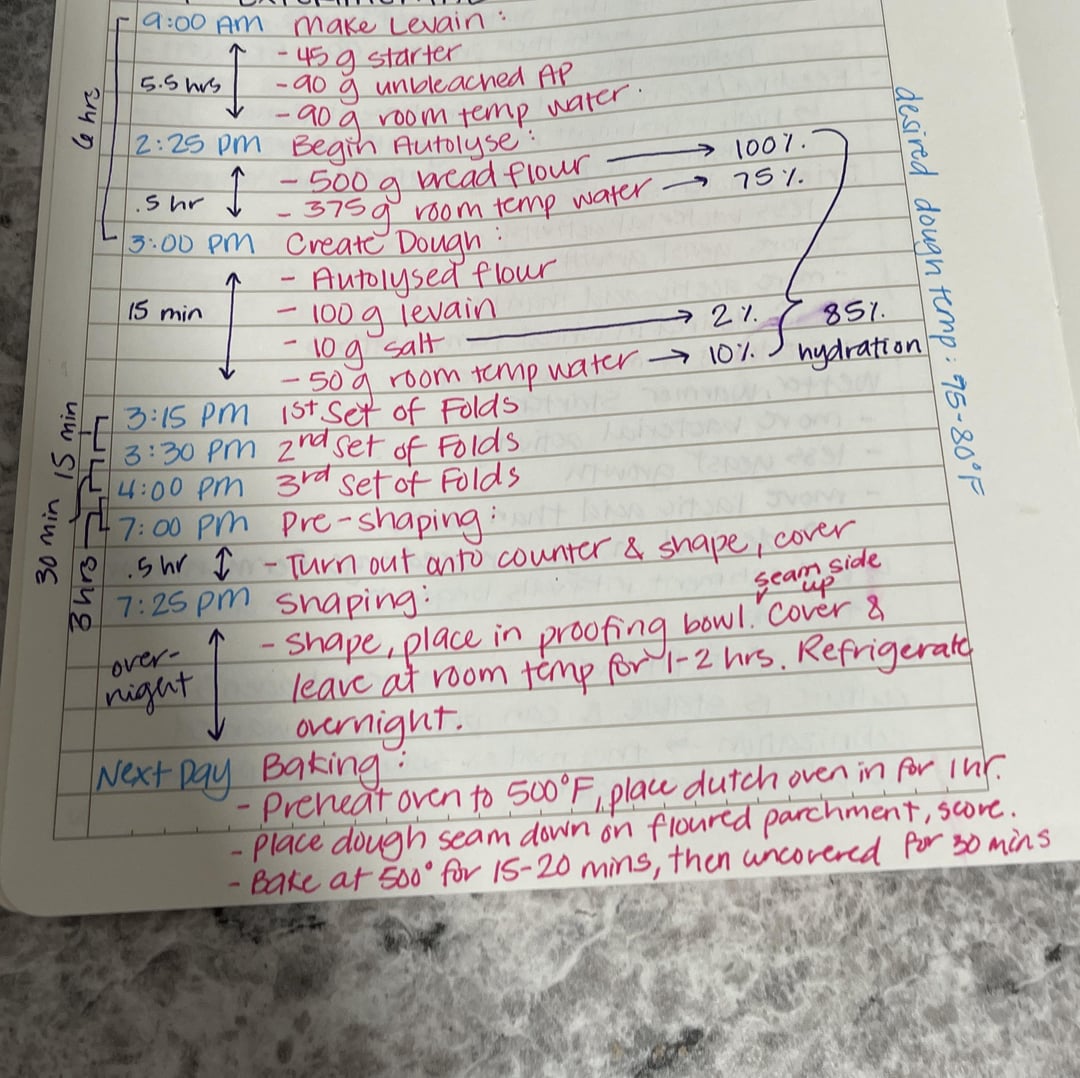 9:00 AM Make Levain:
- 45 g starter
5.5 hrs - 90 g unbleached AP
- 90 g room temp water.
6 hrs
2:25 PM Begin Autolyse:
- 500 g bread flour → 100%.
.5 hr - 375 g room temp water → 75%.
3:00 PM Create Dough:
- Autolysed flour
15 min - 100 g levain
- 10 g salt → 2%.
- 50 g room temp water → 10%.
85%.
hydration
desired dough temp: 75-80°F
3:15 PM 1st Set of Folds
3:30 PM 2nd Set of Folds
4:00 PM 3rd Set of Folds
15 min
30 min
3 hrs
7:00 PM Pre-shaping:
.5 hr - Turn out onto counter & shape, cover
7:25 PM Shaping:
seam side
up
- Shape, place in proofing bowl. Cover &
over-
night
leave at room temp for 1-2 hrs. Refrigerate
overnight.
Next Day Baking:
- Preheat oven to 500°F, place dutch oven in for 1 hr.
- Place dough seam down on floured parchment, score.
- Bake at 500° for 15-20 mins, then uncovered for 30 mins